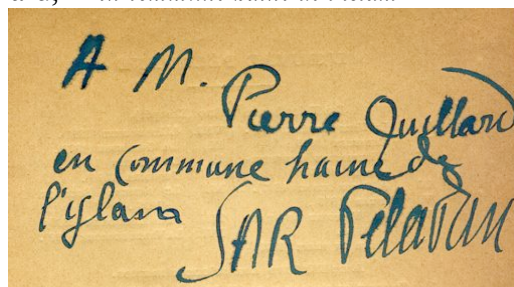 A M.
Pierre Quillard
en commune haine de
l'yslam
SAR Peladan